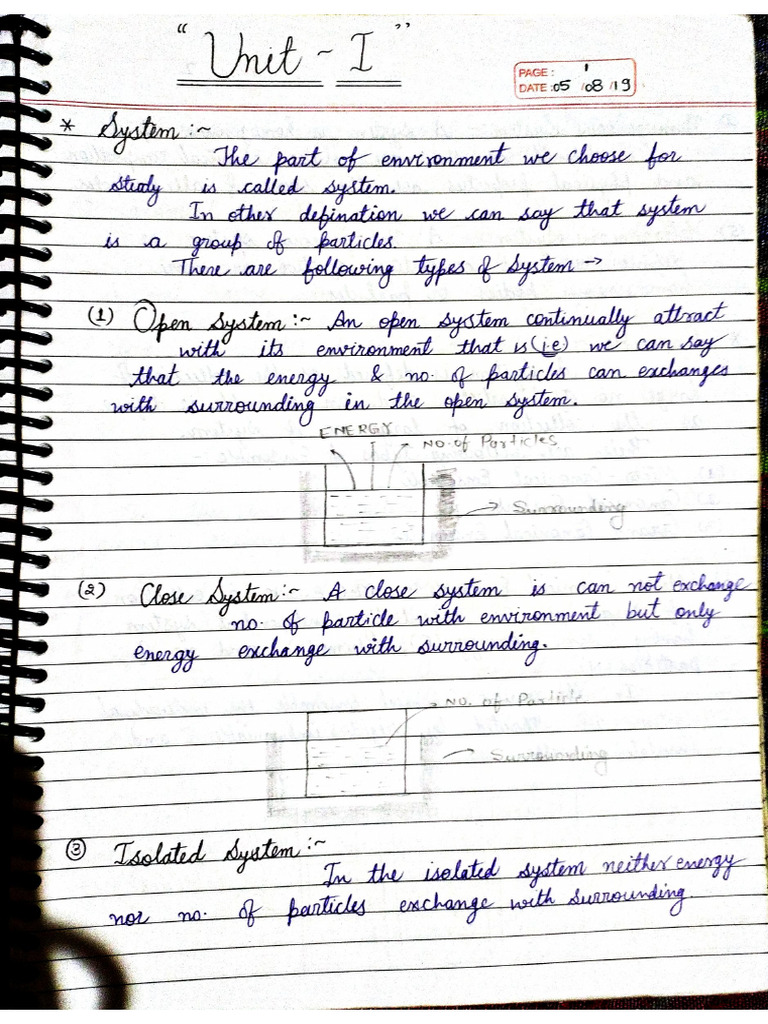 "Unit - I"
PAGE: 1
DATE: 05 /08 /19
* System :~
The part of environment we choose for
study is called system.
In other defination we can say that system
is a group of particles.
There are following types of System →
(1) Open System :~ An open system continually attract
with its environment that is (i.e) we can say
that the energy & no. of particles can exchanges
with surrounding in the open system.
ENERGY
NO. of Particles
Surrounding
(2) Close System :~ A close system is can not exchange
no. of particle with environment but only
energy exchange with surrounding.
NO. of Particle
Surrounding
(3) Isolated System :~
In the isolated system neither energy
nor no. of particles exchange with surrounding.